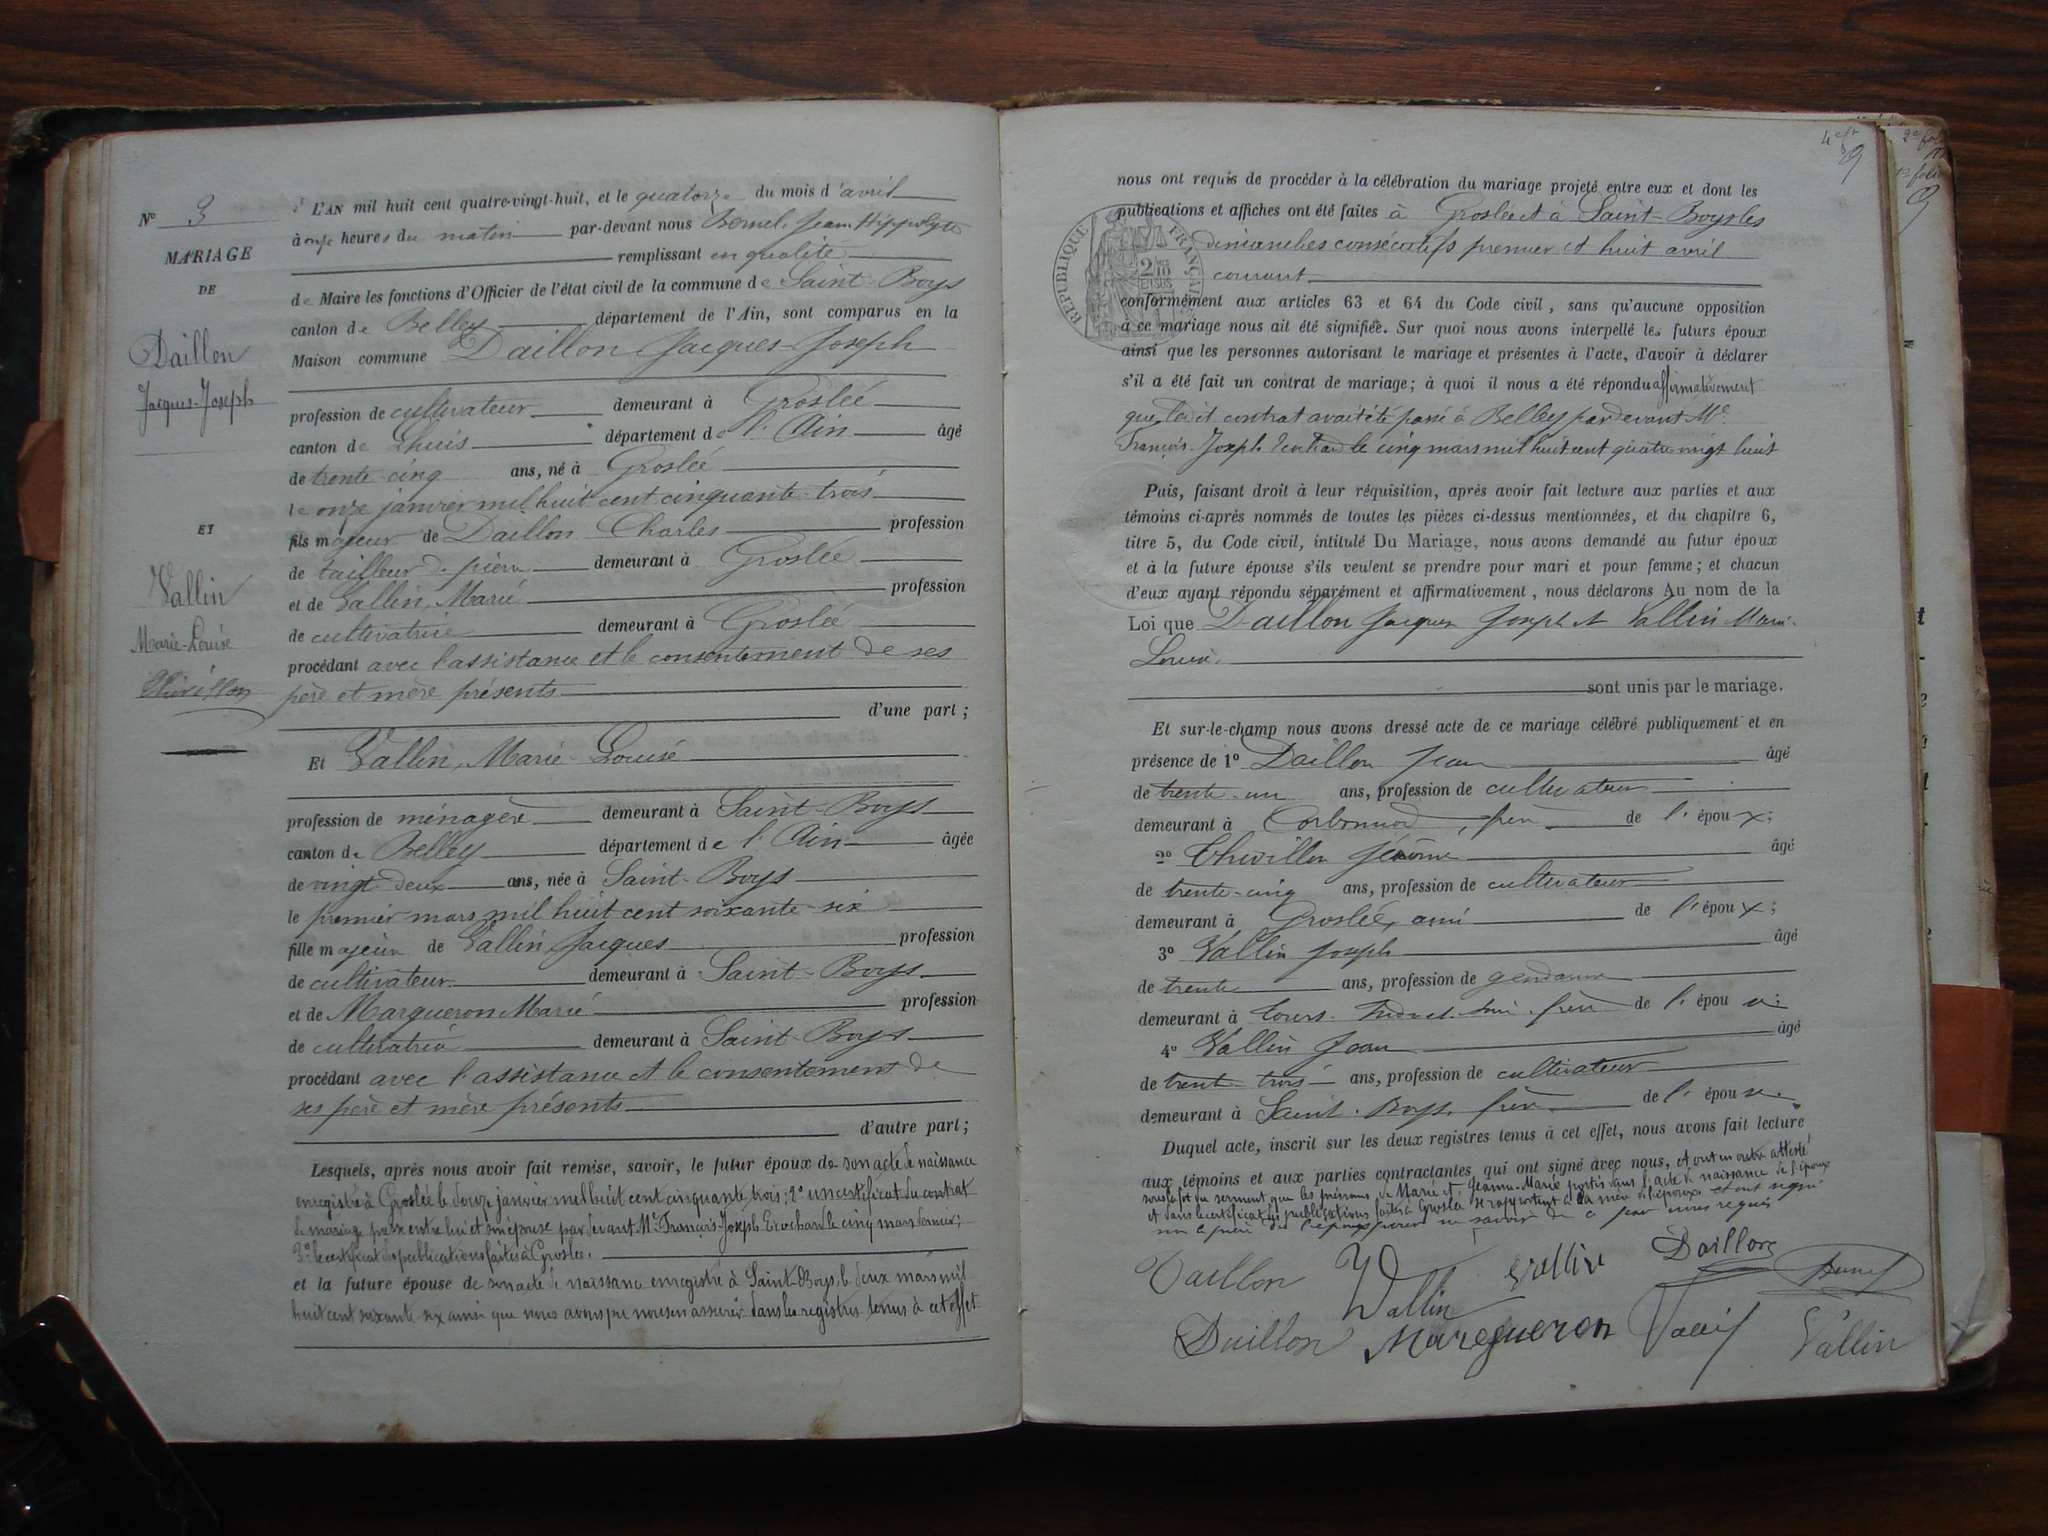 N° 3
MARIAGE
DE
Daillon
Jacques-Joseph
ET
Vallin
Marie-Louise
L'AN mil huit cent quatre-vingt-huit, et le quatorze du mois d'avril
à onze heures du matin par-devant nous Jean-Hippolyte
remplissant en qualité
de Maire les fonctions d'Officier de l'état civil de la commune de Saint-Boys
canton de Belley département de l'Ain, sont comparus en la
Maison commune Daillon Jacques-Joseph
profession de cultivateur demeurant à Groslée
canton de Lhuis département de l'Ain âgé
de trente-cinq ans, né à Groslée
le onze janvier mil huit cent cinquante-trois
fils majeur de Daillon Charles profession
de tailleur de pierre demeurant à Groslée
et de Vallin, Marie profession
de cultivatrice demeurant à Groslée
procédant avec l'assistance et le consentement de ses
père et mère présents
d'une part ;
Et Vallin, Marie-Louise
profession de ménagère demeurant à Saint-Boys
canton de Belley département de l'Ain âgée
de vingt-deux ans, née à Saint-Boys
le premier mars mil huit cent soixante-six
fille majeure de Vallin Jacques profession
de cultivateur demeurant à Saint-Boys
et de Margueron Marie profession
de cultivatrice demeurant à Saint-Boys
procédant avec l'assistance et le consentement de
ses père et mère présents
d'autre part ;
Lesquels, après nous avoir fait remise, savoir, le futur époux de son acte de naissance
enregistré à Groslée le douze janvier mil huit cent cinquante trois ; 2° un certificat du contrat
de mariage passé entre lui et son épouse par devant Me François-Joseph le cinq mars dernier ;
3° le certificat des publications faites à Groslée.
et la future épouse de son acte de naissance enregistré à Saint-Boys le deux mars mil
huit cent soixante-six ainsi que nous avons pu nous en assurer dans les registres tenus à cet effet
4e
nous ont requis de procéder à la célébration du mariage projeté entre eux et dont les
publications et affiches ont été faites à Groslée et à Saint-Boys les
dimanches consécutifs premier et huit avril
courant
RÉPUBLIQUE FRANÇAISE
2/10
EN SUS
conformément aux articles 63 et 64 du Code civil, sans qu'aucune opposition
à ce mariage nous ait été signifiée. Sur quoi nous avons interpellé les futurs époux
ainsi que les personnes autorisant le mariage et présentes à l'acte, d'avoir à déclarer
s'il a été fait un contrat de mariage ; à quoi il nous a été répondu affirmativement
que ledit contrat avait été passé à Belley par devant Me
François-Joseph le cinq mars mil huit cent quatre vingt huit
Puis, faisant droit à leur réquisition, après avoir fait lecture aux parties et aux
témoins ci-après nommés de toutes les pièces ci-dessus mentionnées, et du chapitre 6,
titre 5, du Code civil, intitulé Du Mariage, nous avons demandé au futur époux
et à la future épouse s'ils veulent se prendre pour mari et pour femme ; et chacun
d'eux ayant répondu séparément et affirmativement, nous déclarons Au nom de la
Loi que Daillon Jacques Joseph et Vallin Marie-
Louise
sont unis par le mariage.
Et sur-le-champ nous avons dressé acte de ce mariage célébré publiquement et en
présence de 1° Daillon Jean âgé
de trente-un ans, profession de cultivateur
demeurant à Corbonod, frère de l'époux ;
2° Thévillon Jérôme âgé
de trente-cinq ans, profession de cultivateur
demeurant à Groslée, ami de l'époux ;
3° Vallin Joseph âgé
de trente ans, profession de gendarme
demeurant à Tours frère de l'épouse
4° Vallin Jean âgé
de trente-trois ans, profession de cultivateur
demeurant à Saint-Boys, frère de l'épouse
Duquel acte, inscrit sur les deux registres tenus à cet effet, nous avons fait lecture
aux témoins et aux parties contractantes qui ont signé avec nous, et ont en outre attesté
sous la foi du serment que les prénoms de Marie et Jeanne-Marie portés dans l'acte de naissance de l'époux
et dans le certificat des publications faites à Groslée se rapportent à la mère de l'époux et ont signé
Daillon
Vallin
Vallin
Daillon
Daillon
Margueron
Vallin